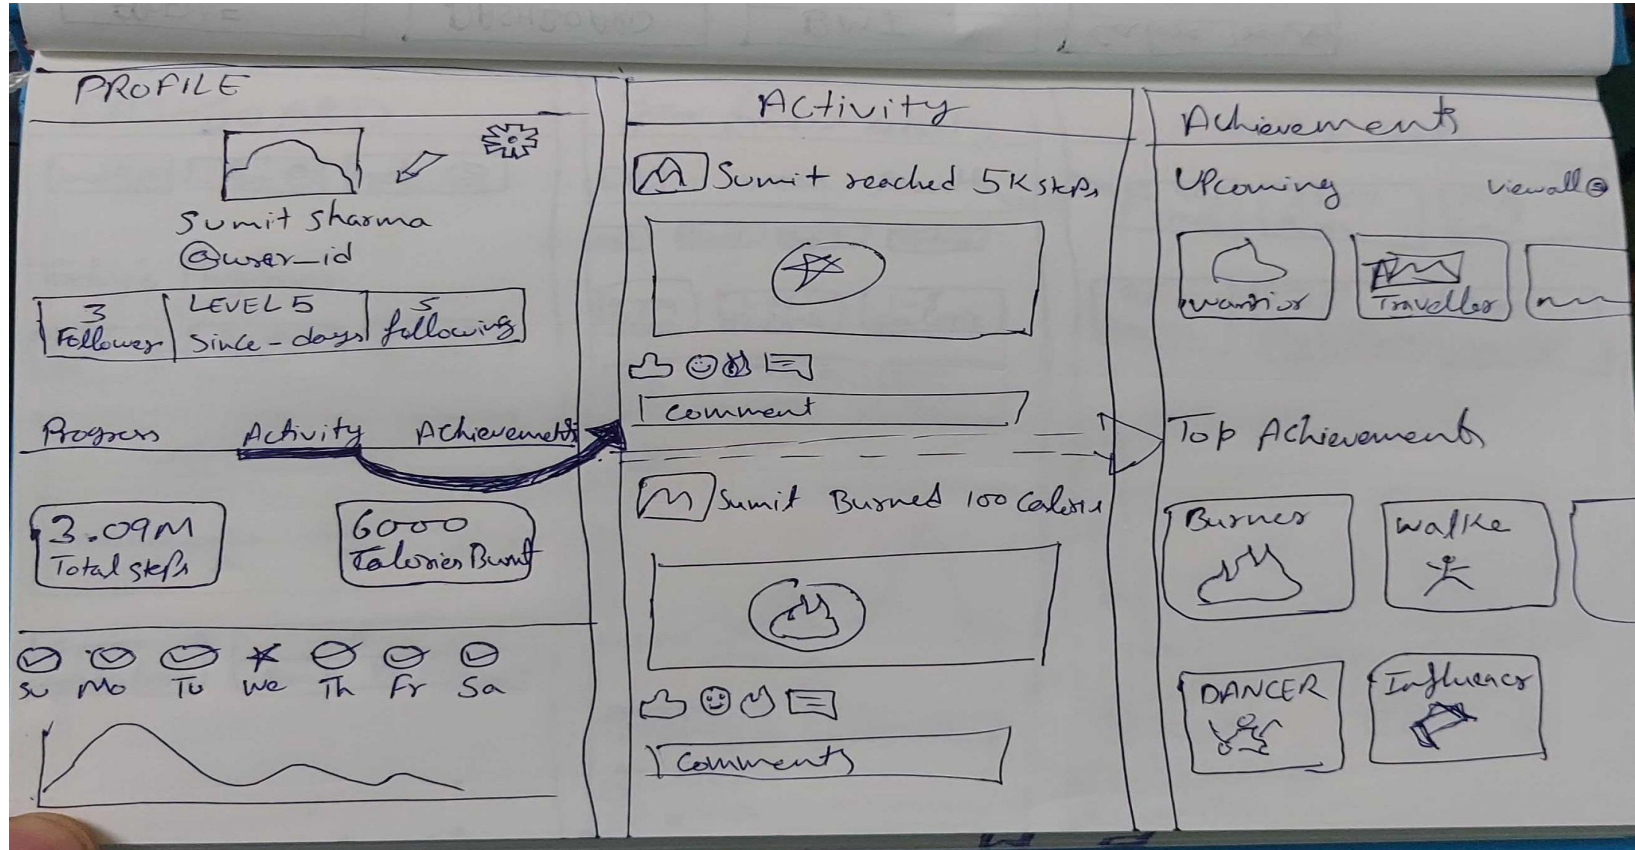 PROFILE
Sumit Sharma
@user_id
3
Follower
LEVEL 5
Since - days
5
following
Progress
Activity
Achievements
3.09M
Total steps
6000
Calories Burnt
Su Mo Tu We Th Fr Sa
Activity
Sumit reached 5K steps
comment
Sumit Burned 100 Calorie
comments
Achievements
Upcoming
view all
Warrior
Traveller
Top Achievements
Burner
Walke
DANCER
Influencer